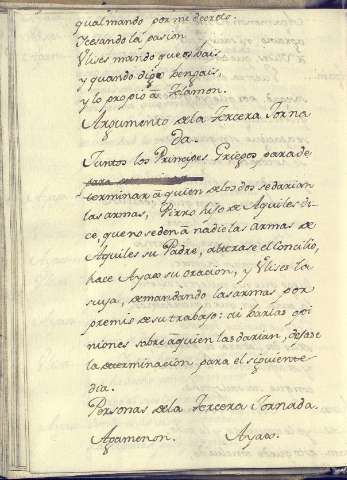 qual mando por mi decreto.
Y cesando la pasión
Ulises mando que os bais
y quando digo bengais,
y lo propio â Telamon.
Argumento de la Tercera Jorna
da.
Juntos los Principes Griegos para de
terminar â quien de los dos se darian
las armas, Pirro hijo de Aquiles di-
ce, que no se den â nadie las armas de
Aquiles su Padre, alterase el Concilio,
hace Ayax su oracion, y Ulises la
suya, demandando las armas por
premio de su trabajo: ai barias opi
niones sobre â quien las darian, dejase
la determinacion para el siguiente
dia.
Personas de la Tercera Jornada.
Agamenon. Ayax.